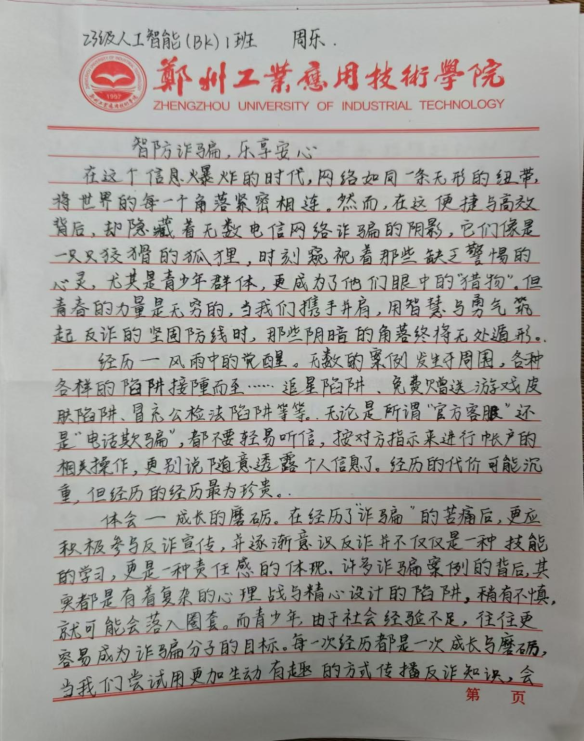 23级人工智能(BK)1班 周乐.
鄭州工業應用技術學院
ZHENGZHOU UNIVERSITY OF INDUSTRIAL TECHNOLOGY
智防诈骗,乐享安心
在这个信息爆炸的时代,网络如同一条无形的纽带,
将世界的每一个角落紧密相连。然而,在这便捷与高效
背后,却隐藏着无数电信网络诈骗的阴影,它们像是
一只只狡猾的狐狸,时刻窥视着那些缺乏警惕的
心灵,尤其是青少年群体,更成为了他们眼中的“猎物”。但
青春的力量是无穷的,当我们携手并肩,用智慧与勇气筑
起反诈的坚固防线时,那些阴暗的角落终将无处遁形。
经历一风雨中的觉醒。无数的案例发生于周围,各种
各样的陷阱接踵而至……追星陷阱、免费赠送游戏皮
肤陷阱、冒充公检法陷阱等等。无论是所谓“官方客服”还
是“电话欺骗”,都不要轻易听信,按对方指示来进行帐户的
相关操作,更别说随意透露个人信息了。经历的代价可能沉
重,但经历的经历最为珍贵。
体会一成长的磨砺。在经历了“诈骗”的苦痛后,更应
积极参与反诈宣传,并逐渐意识反诈并不仅仅是一种技能
的学习,更是一种责任感的体现。许多诈骗案例的背后,其
实都是有着复杂的心理战与精心设计的陷阱,稍有不慎,
就可能会落入圈套。而青少年,由于社会经验不足,往往更
容易成为诈骗分子的目标。每一次经历都是一次成长与磨砺,
当我们尝试用更加生动有趣的方式传播反诈知识,会
第 页